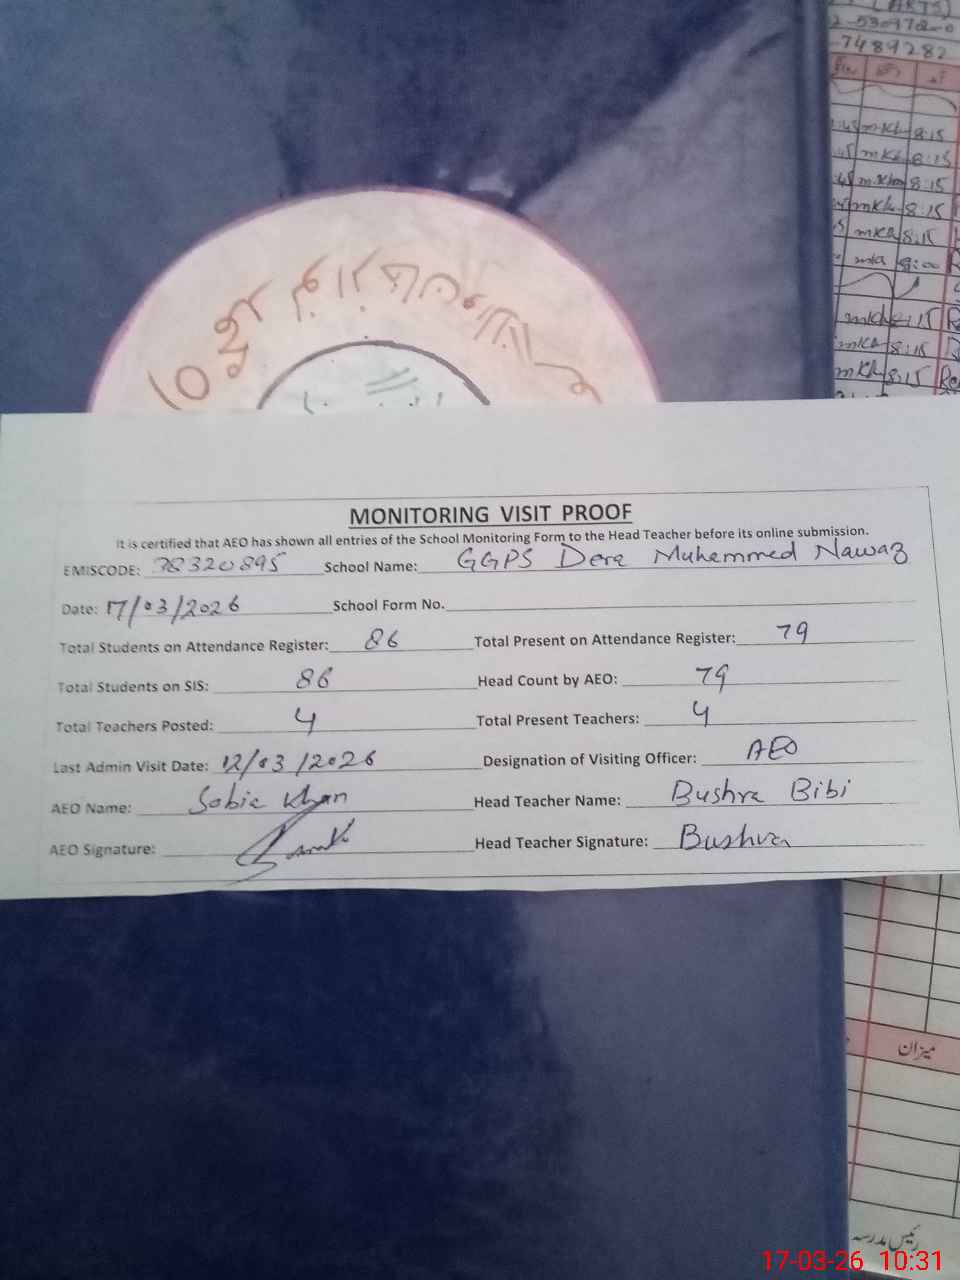 (ARTS)
2-530972-0
-7489282
8:15
mKh 8:15
m.Khan 8:15
mKh 8:15
mKh 8:15
mKh 8:00
mKh 8:15
mKh 8:15
mKh 8:15
MONITORING VISIT PROOF
It is certified that AEO has shown all entries of the School Monitoring Form to the Head Teacher before its online submission.
EMISCODE: 38320895 School Name: GGPS Dera Muhammed Nawaz
Date: 17/03/2026 School Form No.
Total Students on Attendance Register: 86 Total Present on Attendance Register: 79
Total Students on SIS: 86 Head Count by AEO: 79
Total Teachers Posted: 4 Total Present Teachers: 4
Last Admin Visit Date: 12/03/2026 Designation of Visiting Officer: AEO
AEO Name: Sobia Khan Head Teacher Name: Bushra Bibi
AEO Signature: Head Teacher Signature: Bushra
میزان
رئیس مدرسہ
17-03-26 10:31